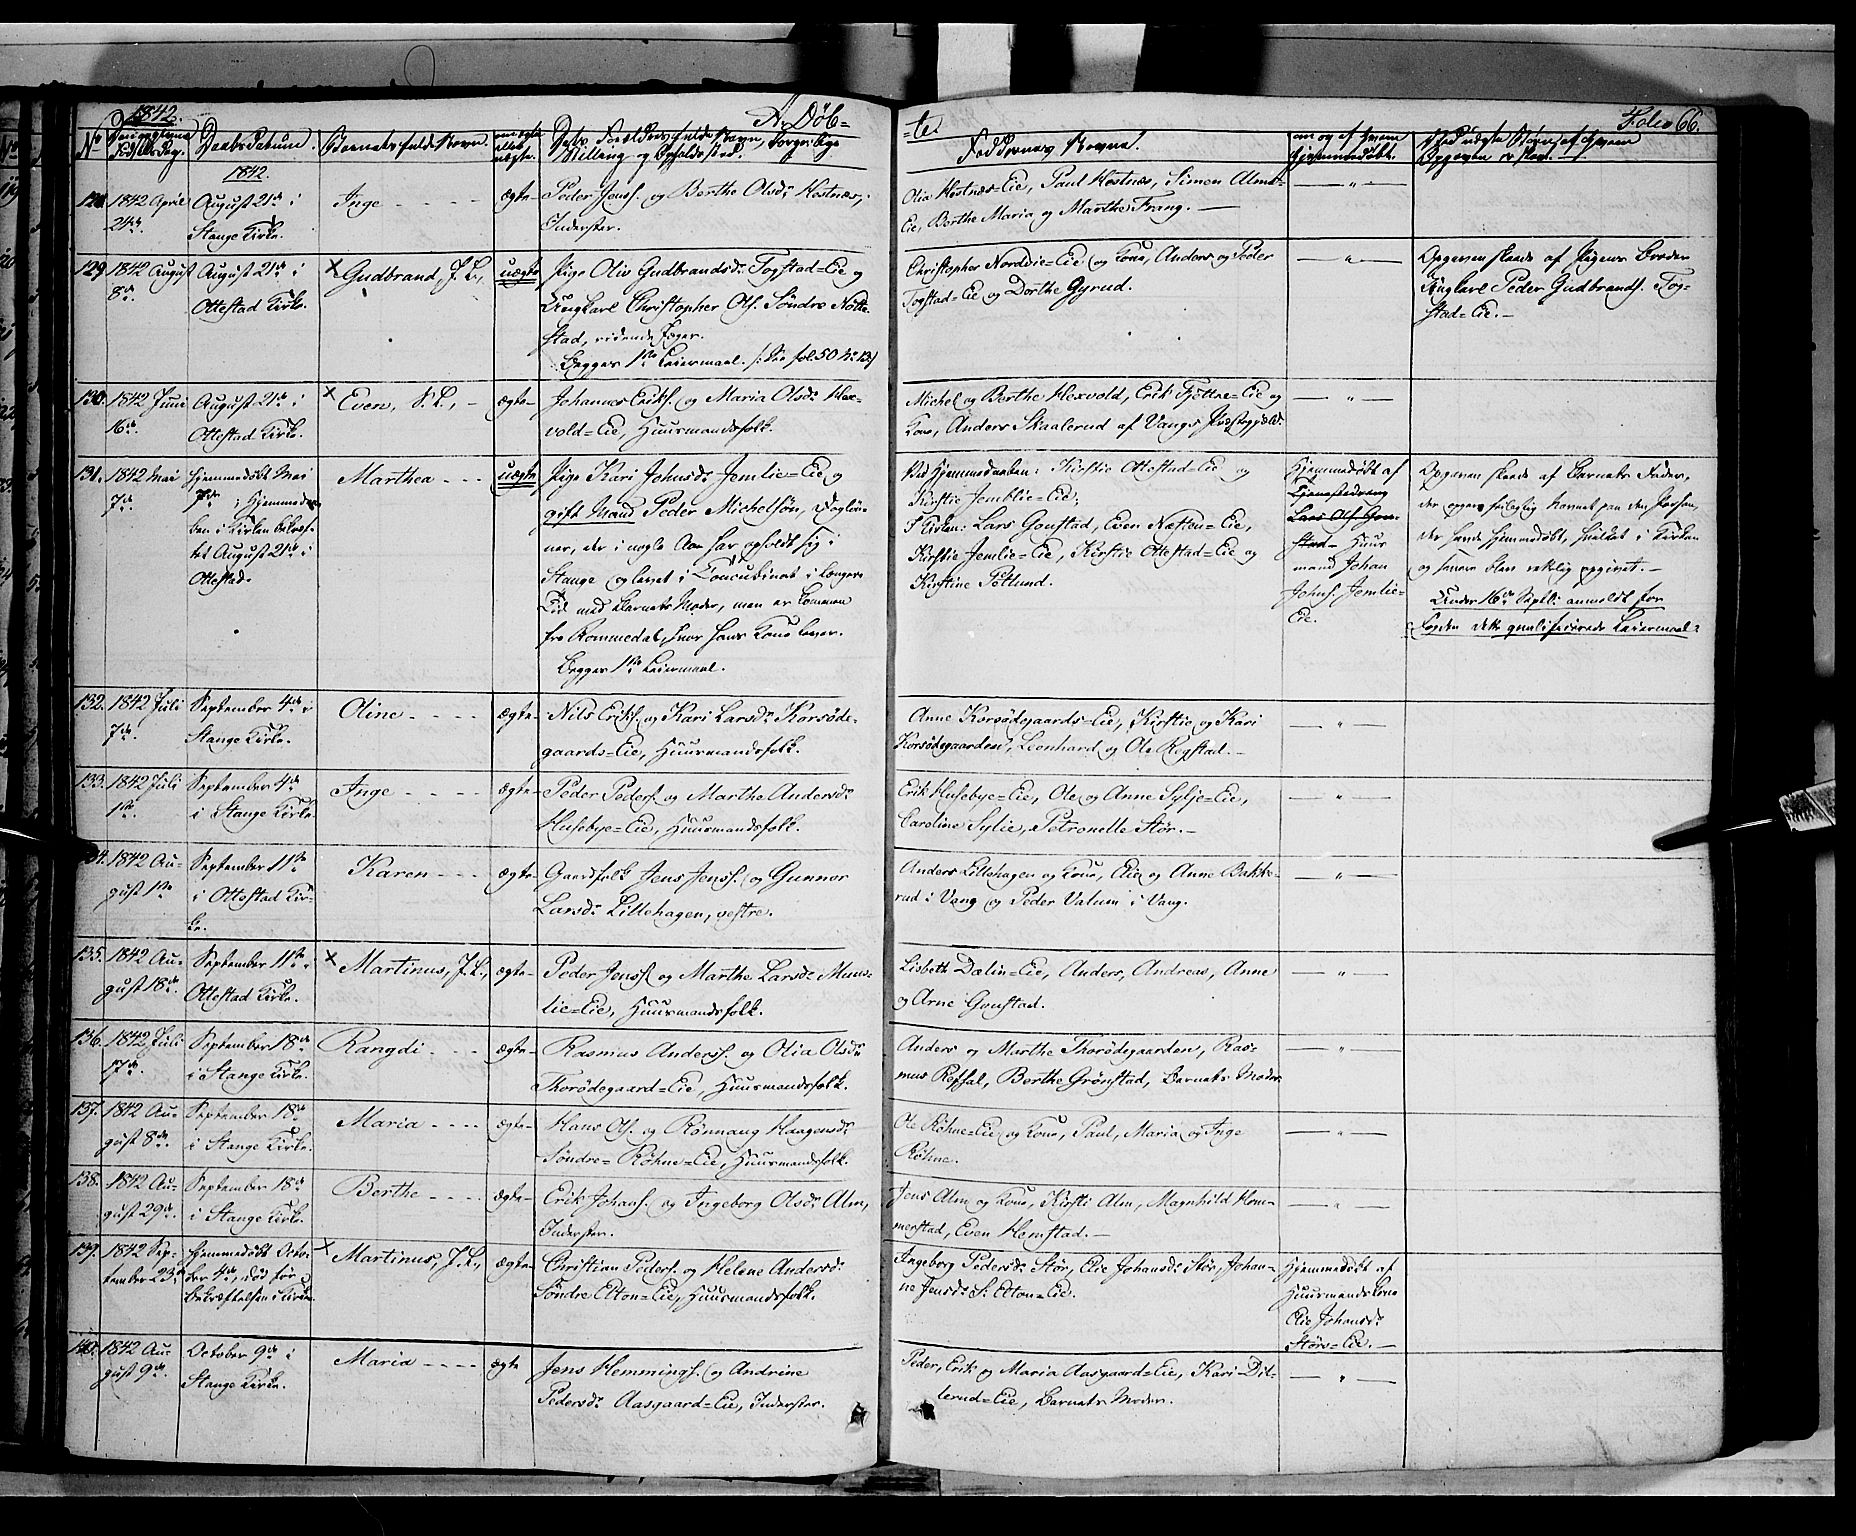 1842.
A. Døb=
=te.
Folio 66.
No
Daabsdatum.
Barnets fulde Navn.
Faddernes Navne.
om og af hvem
hjemmedøbt.
1842.
128 1842 April
24de.
August 21de i
Stange Kirke.
Inge
ægte
Peder Jens. og Berthe Olsdr Hostnæs,
Inderster.
Olia Hostnæs=Eie, Paul Hostnæs, Simen Alm=
Eie, Berthe Maria og Marthe Frang.
129 1842 August
8de.
August 21de i
Ottestad Kirke.
× Gudbrand, F. L.,
uægte
Pige Oliv Gudbrandsdr Togstad=Eie og
Ungkarl Christopher Ols. Søndre Nøtte=
stad, ridende Jæger.
Begges 1ste Leiermaal. /: See fol. 50 No 13 /
Christopher Norddie=Eie og Kone, Anders og Peder
Togstad=Eie og Dorthe Gyrud.
Opgaven skede af Pigens Broder
Ungkarl Peder Gudbrands. Tog=
stad=Eie.
130. 1842 Juni
16de.
August 21de i
Ottestad Kirke.
× Even, S. L.,
ægte
Johannes Eriks. og Maria Olsdr Hex=
vold=Eie, Huusmandsfolk.
Michel og Berthe Hexvold, Erik Tjøttne=Eie og
Kone, Anders Skaalerud af Vangs Præstegjeld.
131. 1842 Mai
7de.
Hjemmedøbt Mai
7de; Hjemmedaa=
ben i Kirken bekræf=
tet August 21de i
Ottestad.
Marthea
uægte
Pige Kari Johnsdr Jemlie=Eie og
gift Mand Peder Michelsøn, Dagløn=
ner, der i nogle Aar har opholdt sig i
Stange og levet i Concubinat i længere
Tid med Barnets Moder, men er kommen
fra Rommedal, hvor hans Kone lever.
Begges 1ste Leiermaal.
Ved Hjemmedaaben: Kirstie Ottestad=Eie og
Kirstie Jemblie=Eie;
I Kirken: Lars Gonstad, Even Næsten=Eie,
Kirstie Jemlie=Eie, Kirstie Ottestad=Eie og
Kirstine Petlund.
Hjemmedøbt af
Tjenestedreng
Lars Ols. Gon=
stad= Huus
mand Johan
Johns. Jemlie=
Eie.
Opgaven skede af Barnets Fader,
der havde hjemmedøbt, i Kirken
og senere blev rektig opgivet.
Under 16de Septbr: anmeldt for
Fogden dette qualificerede Leiermaal.
132. 1842 Juli
7de.
September 4de i
Stange Kirke.
Oline
ægte
Nils Eriks. og Kari Larsdr Korsøde=
gaards=Eie, Huusmandsfolk.
Anne Korsødegaards=Eie, Kirstie og Kari
Korsødegaarden, Leonhard og Ole Regstad.
133. 1842 Juli
1ste.
September 4de
i Stange Kirke.
Inge
ægte
Peder Peders. og Marthe Andersdr
Husebye=Eie, Huusmandsfolk.
Erik Husebye=Eie, Ole og Anne Sylje=Eie,
Caroline Sylie, Petronelle Stør.
134. 1842 Au=
gust 1ste
September 11te
i Ottestad Kir=
ke.
Karen
ægte
Gaardfolk Jens Jenss. og Gunnor
Larsdr Lillehagen, vestre.
Anders Lillehagen og Kone, Elie og Anne Bakke=
rud i Vang og Peder Valum i Vang.
135. 1842 Au=
gust 18de.
September 11te i
Ottestad Kirke.
× Martinus, F. L.,
ægte
Peder Jenss. og Marthe Larsdr Muns=
lie=Eie, Huusmandsfolk.
Lisbeth Dælin=Eie, Anders, Andreas, Anne
og Arne Gonstad.
136. 1842 Juli
17de.
September 18de
i Stange Kirke.
Rangdi
ægte
Rasmus Anderss. og Olia Olsdr
Thorødegaard=Eie, Huusmandsfolk.
Anders og Marthe Thorødegaarden, Ras=
mus Reffal, Berthe Grønstad, Barnets Moder.
137. 1842 Au=
gust 8de.
September 18de
i Stange Kirke.
Maria
ægte
Hans Ols. og Rønnaug Haagensdr
Søndre= Røhne=Eie, Huusmandsfolk.
Ole Røhne=Eie og Kone, Paul, Maria og Inge
Røhne.
138. 1842 Au=
gust 29de.
September 18de
i Stange Kirke.
Berthe
ægte
Erik Johans. og Ingeborg Olsdr Alm,
Inderster.
Jens Alm og Kone, Kirsti Alm, Magnhild Hom=
merstad, Even Hemstad.
139. 1842 Sep=
tember 23de
Hjemmedøbt Octo=
ber 4de, død før
Bekræftelsen i Kirke.
× Martinus, F. L.,
ægte
Christian Peders. og Helene Andersdr
Søndre Elton=Eie, Huusmandsfolk.
Ingeborg Pedersdr Stør, Elie Johansdr Stør, Johan=
ne Jensdr S. Elton=Eie.
Hjemmedøbt af
Huusmandskone
Elie Johansdr
Størs=Eie.
140. 1842 Au=
gust 9de.
October 9de i
Stange Kirke.
Maria
ægte
Jens Hemmings. og Andrine
Pedersdr Aasgaard=Eie, Inderster.
Peder, Erik og Maria Aasgaard=Eie, Kari Dil=
lerud=Eie, Barnets Moder.